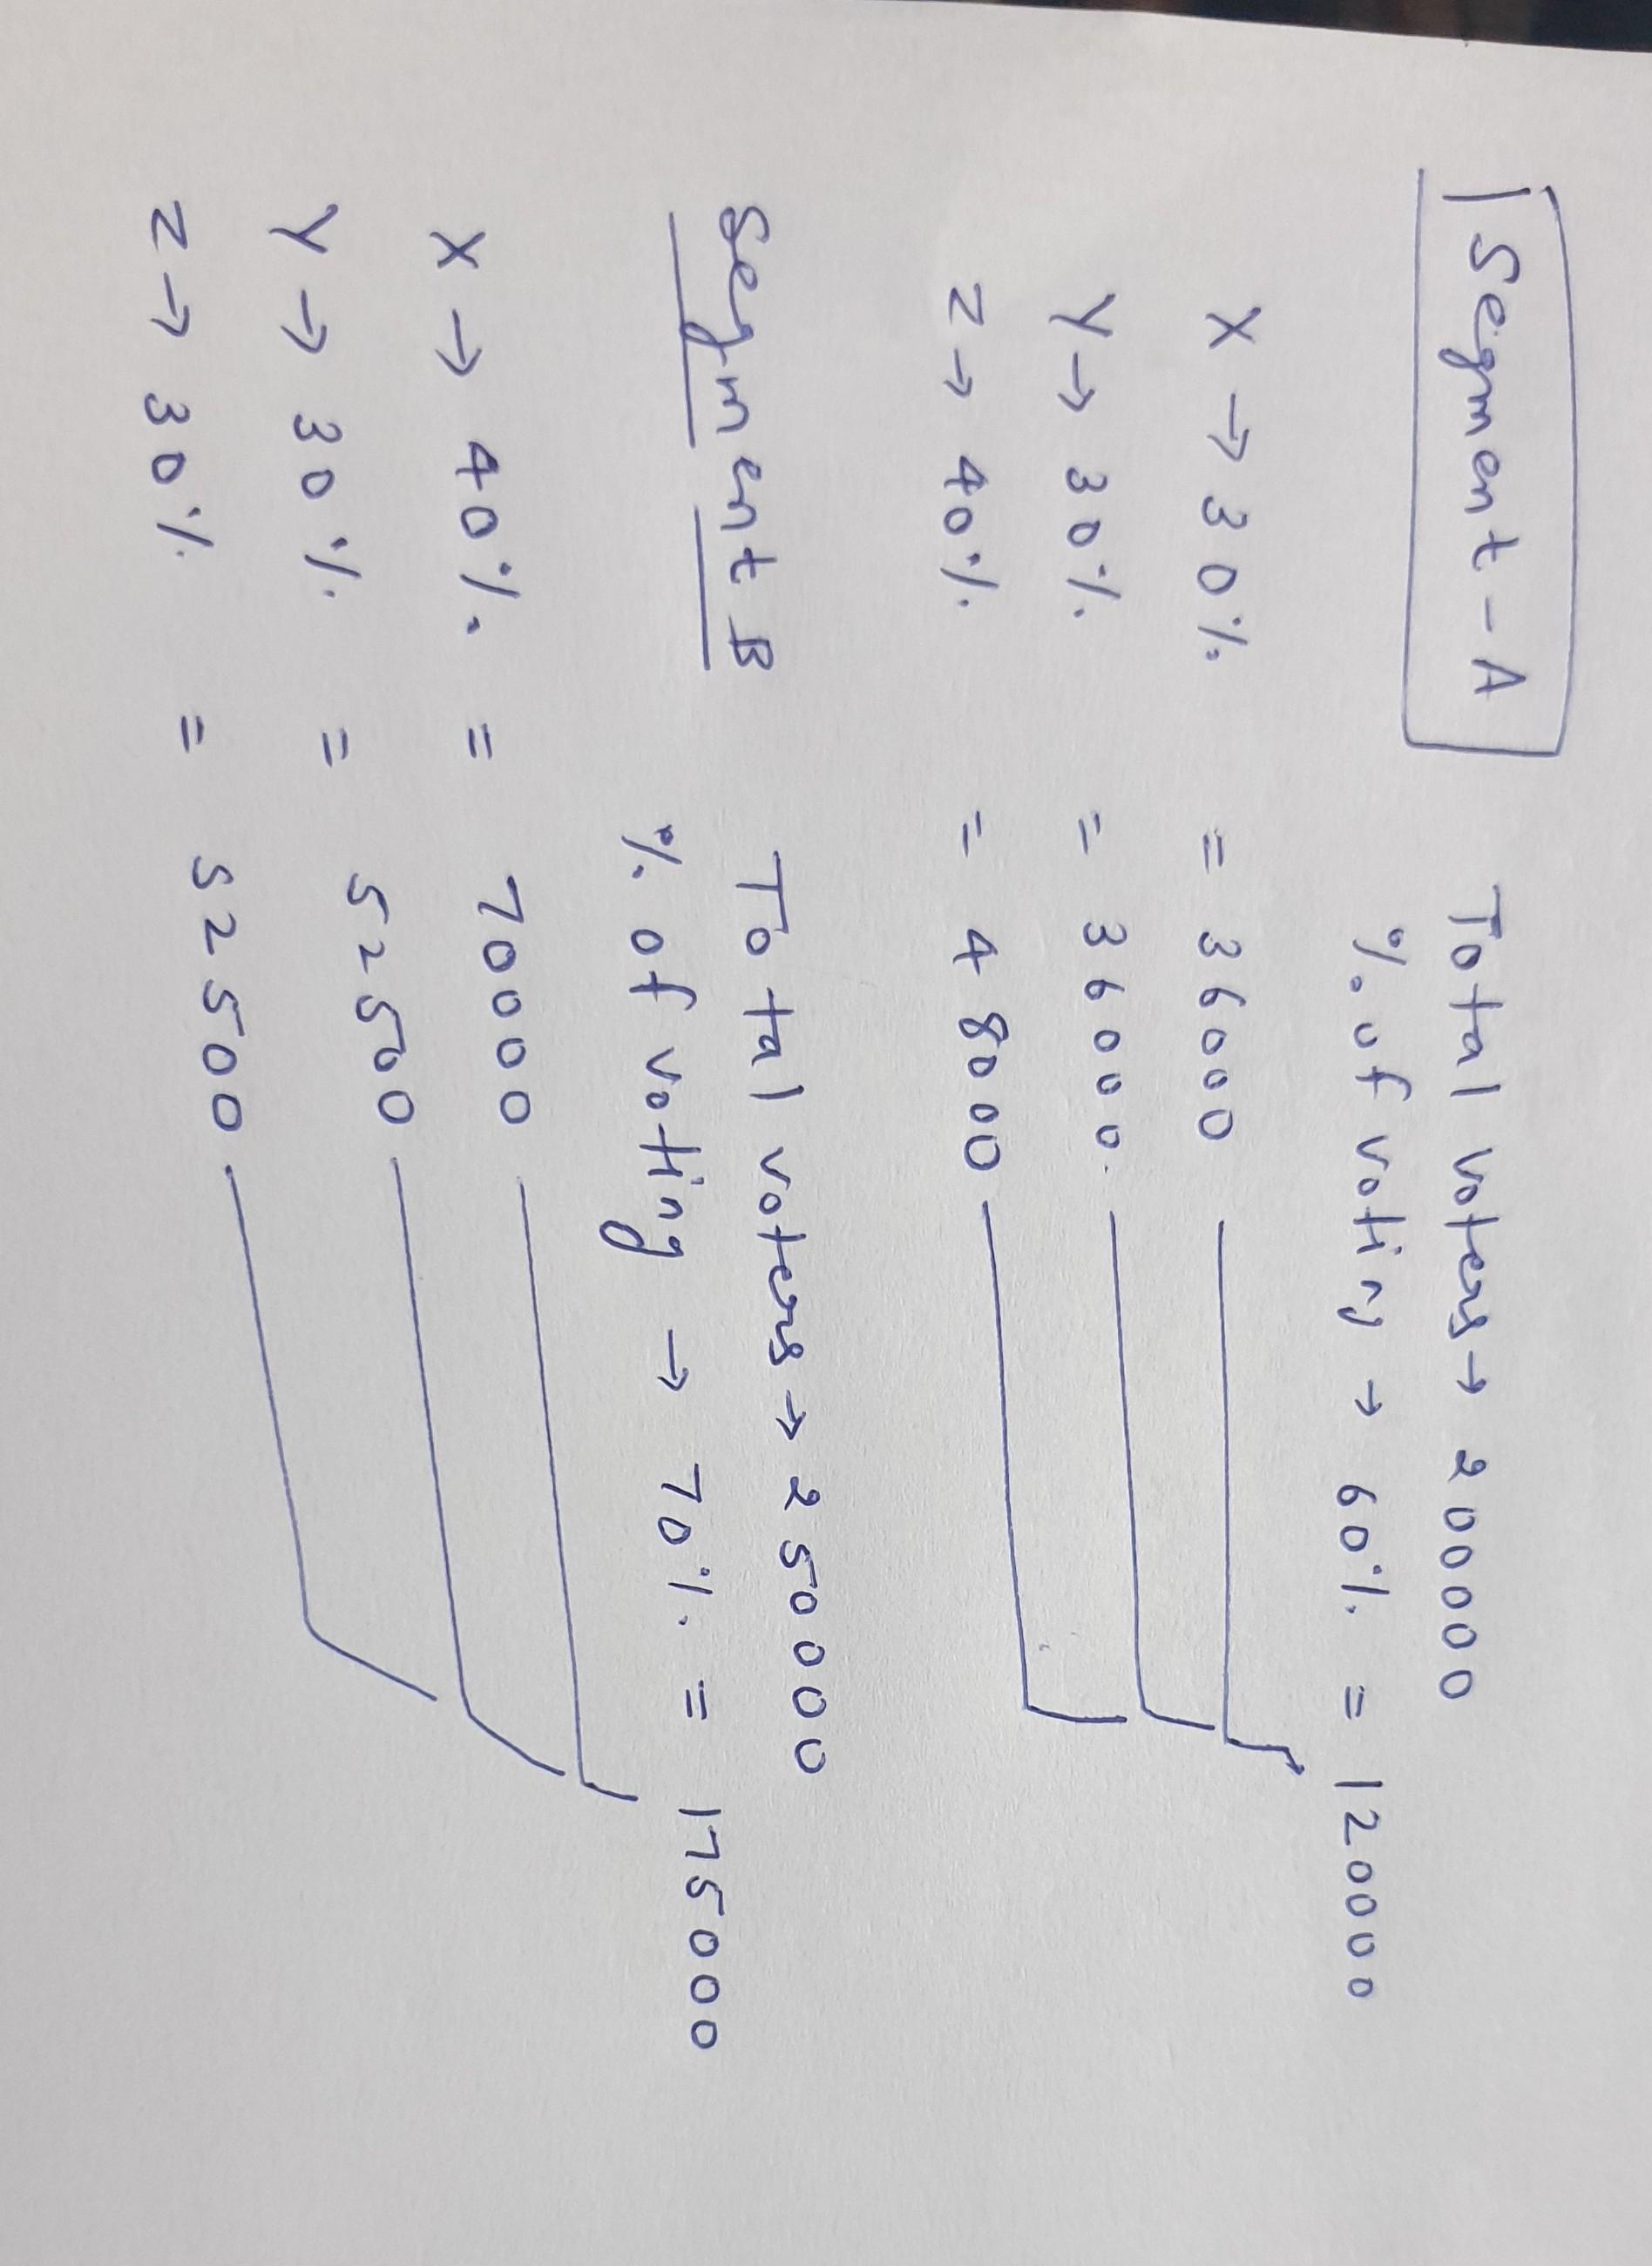 Segment - A
Total voters → 200000
% of voting → 60% = 120000
X → 30% = 36000
Y → 30% = 36000
Z → 40% = 48000
Segment B
Total voters → 250000
% of voting → 70% = 175000
X → 40% = 70000
Y → 30% = 52500
Z → 30% = 52500